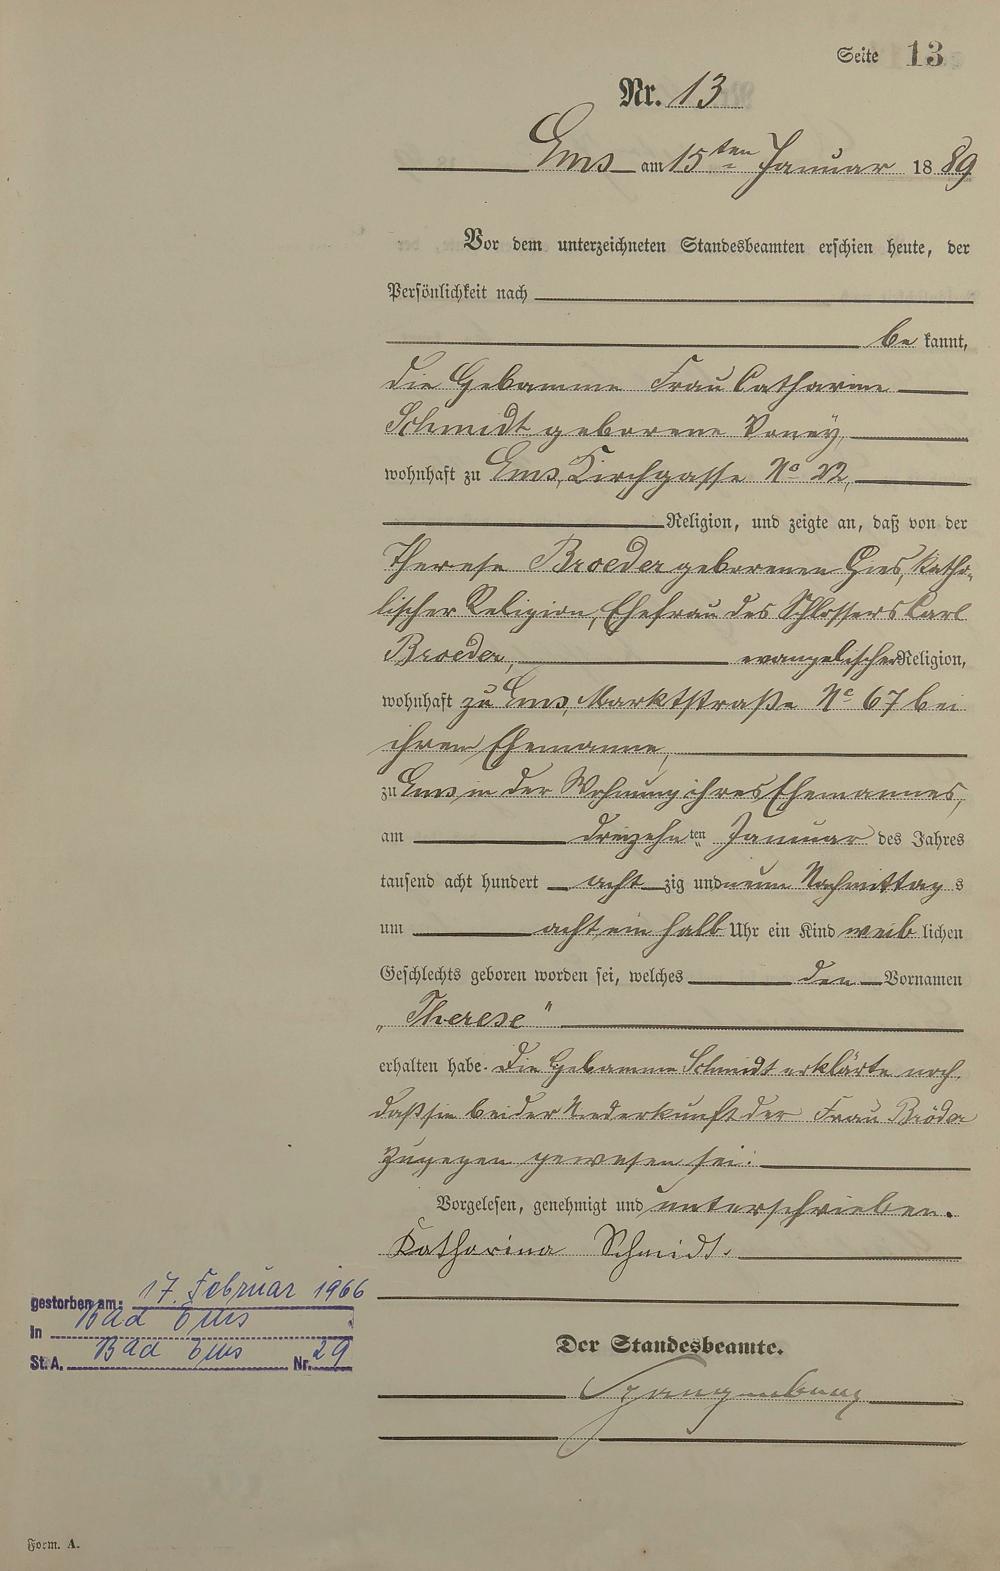 Seite 13
Nr. 13
Ems am 15ten Januar 1889
Vor dem unterzeichneten Standesbeamten erschien heute, der
Persönlichkeit nach
be kannt,
die Hebamme Frau Catharine
Schmidt geborene
wohnhaft zu Ems, Kirchgasse No 22,
Religion, und zeigte an, daß von der
Therese Broeder geborenen Gies, katho-
lischer Religion, Ehefrau des Schlossers Carl
Broeder, evangelischer Religion,
wohnhaft zu Ems, Marktstraße No 67 bei
ihrem Ehemanne,
zu Ems in der Wohnung ihres Ehemannes,
am dreizehnten Januar des Jahres
tausend acht hundert acht zig und neun Nachmittag s
um acht ein halb Uhr ein Kind weib lichen
Geschlechts geboren worden sei, welches den Vornamen
„Therese"
erhalten habe. Die Hebamme Schmidt erklärte noch,
daß sie bei der Niederkunft der Frau Bröder
zugegen gewesen sei.
Vorgelesen, genehmigt und unterschrieben.
Katharina Schmidt.
gestorben am: 17. Februar 1966
In Bad Ems
St. A. Bad Ems Nr. 29
Der Standesbeamte.
Spangenberg
Form. A.